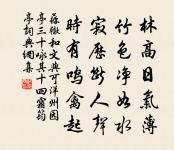 林高日氣薄
竹色净如水
寂歷斷人聲
時有鳴禽起
蘇轍和文與可洋州園
亭三十咏其十四霜筠
亭詞典網集